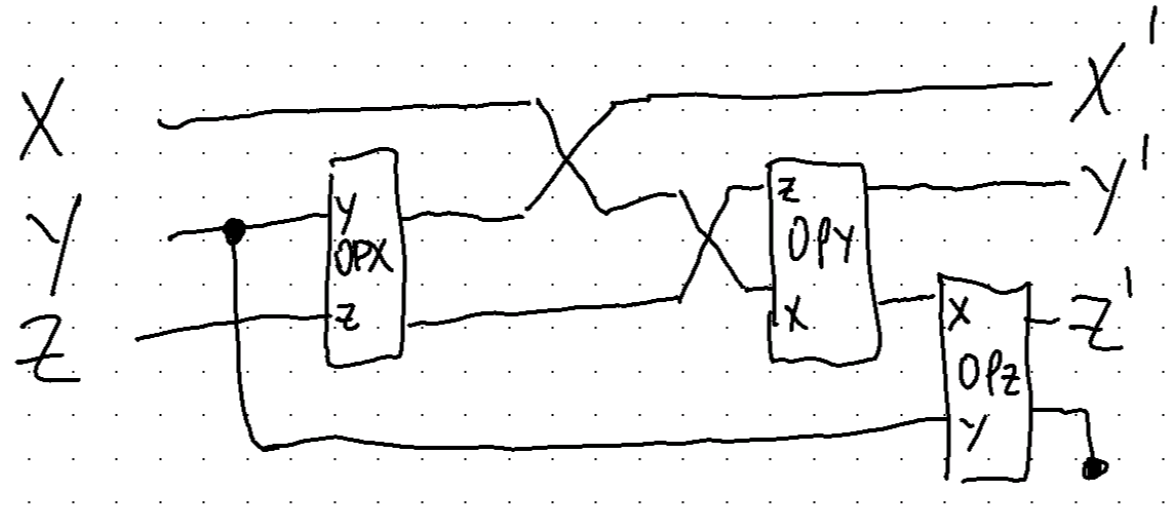 X
Y
Z
Y
OPX
Z
Z
OPY
X
X
OPZ
Y
X'
Y'
Z'